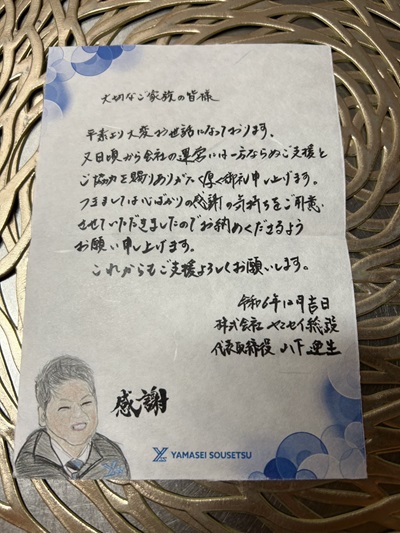 大切なご家族の皆様
平素より大変お世話になっております。
又日頃から会社の運営に一方ならぬご支援と
ご協力を賜りありがたく厚く御礼申し上げます。
つきましては心ばかりの感謝の気持ちをご用意
させていただきましたのでお納めくださるよう
お願い申し上げます。
これからもご支援よろしくお願いします。
令和6年12月吉日
株式会社ヤマセイ総設
代表取締役 山下
感謝
YAMASEI SOUSETSU